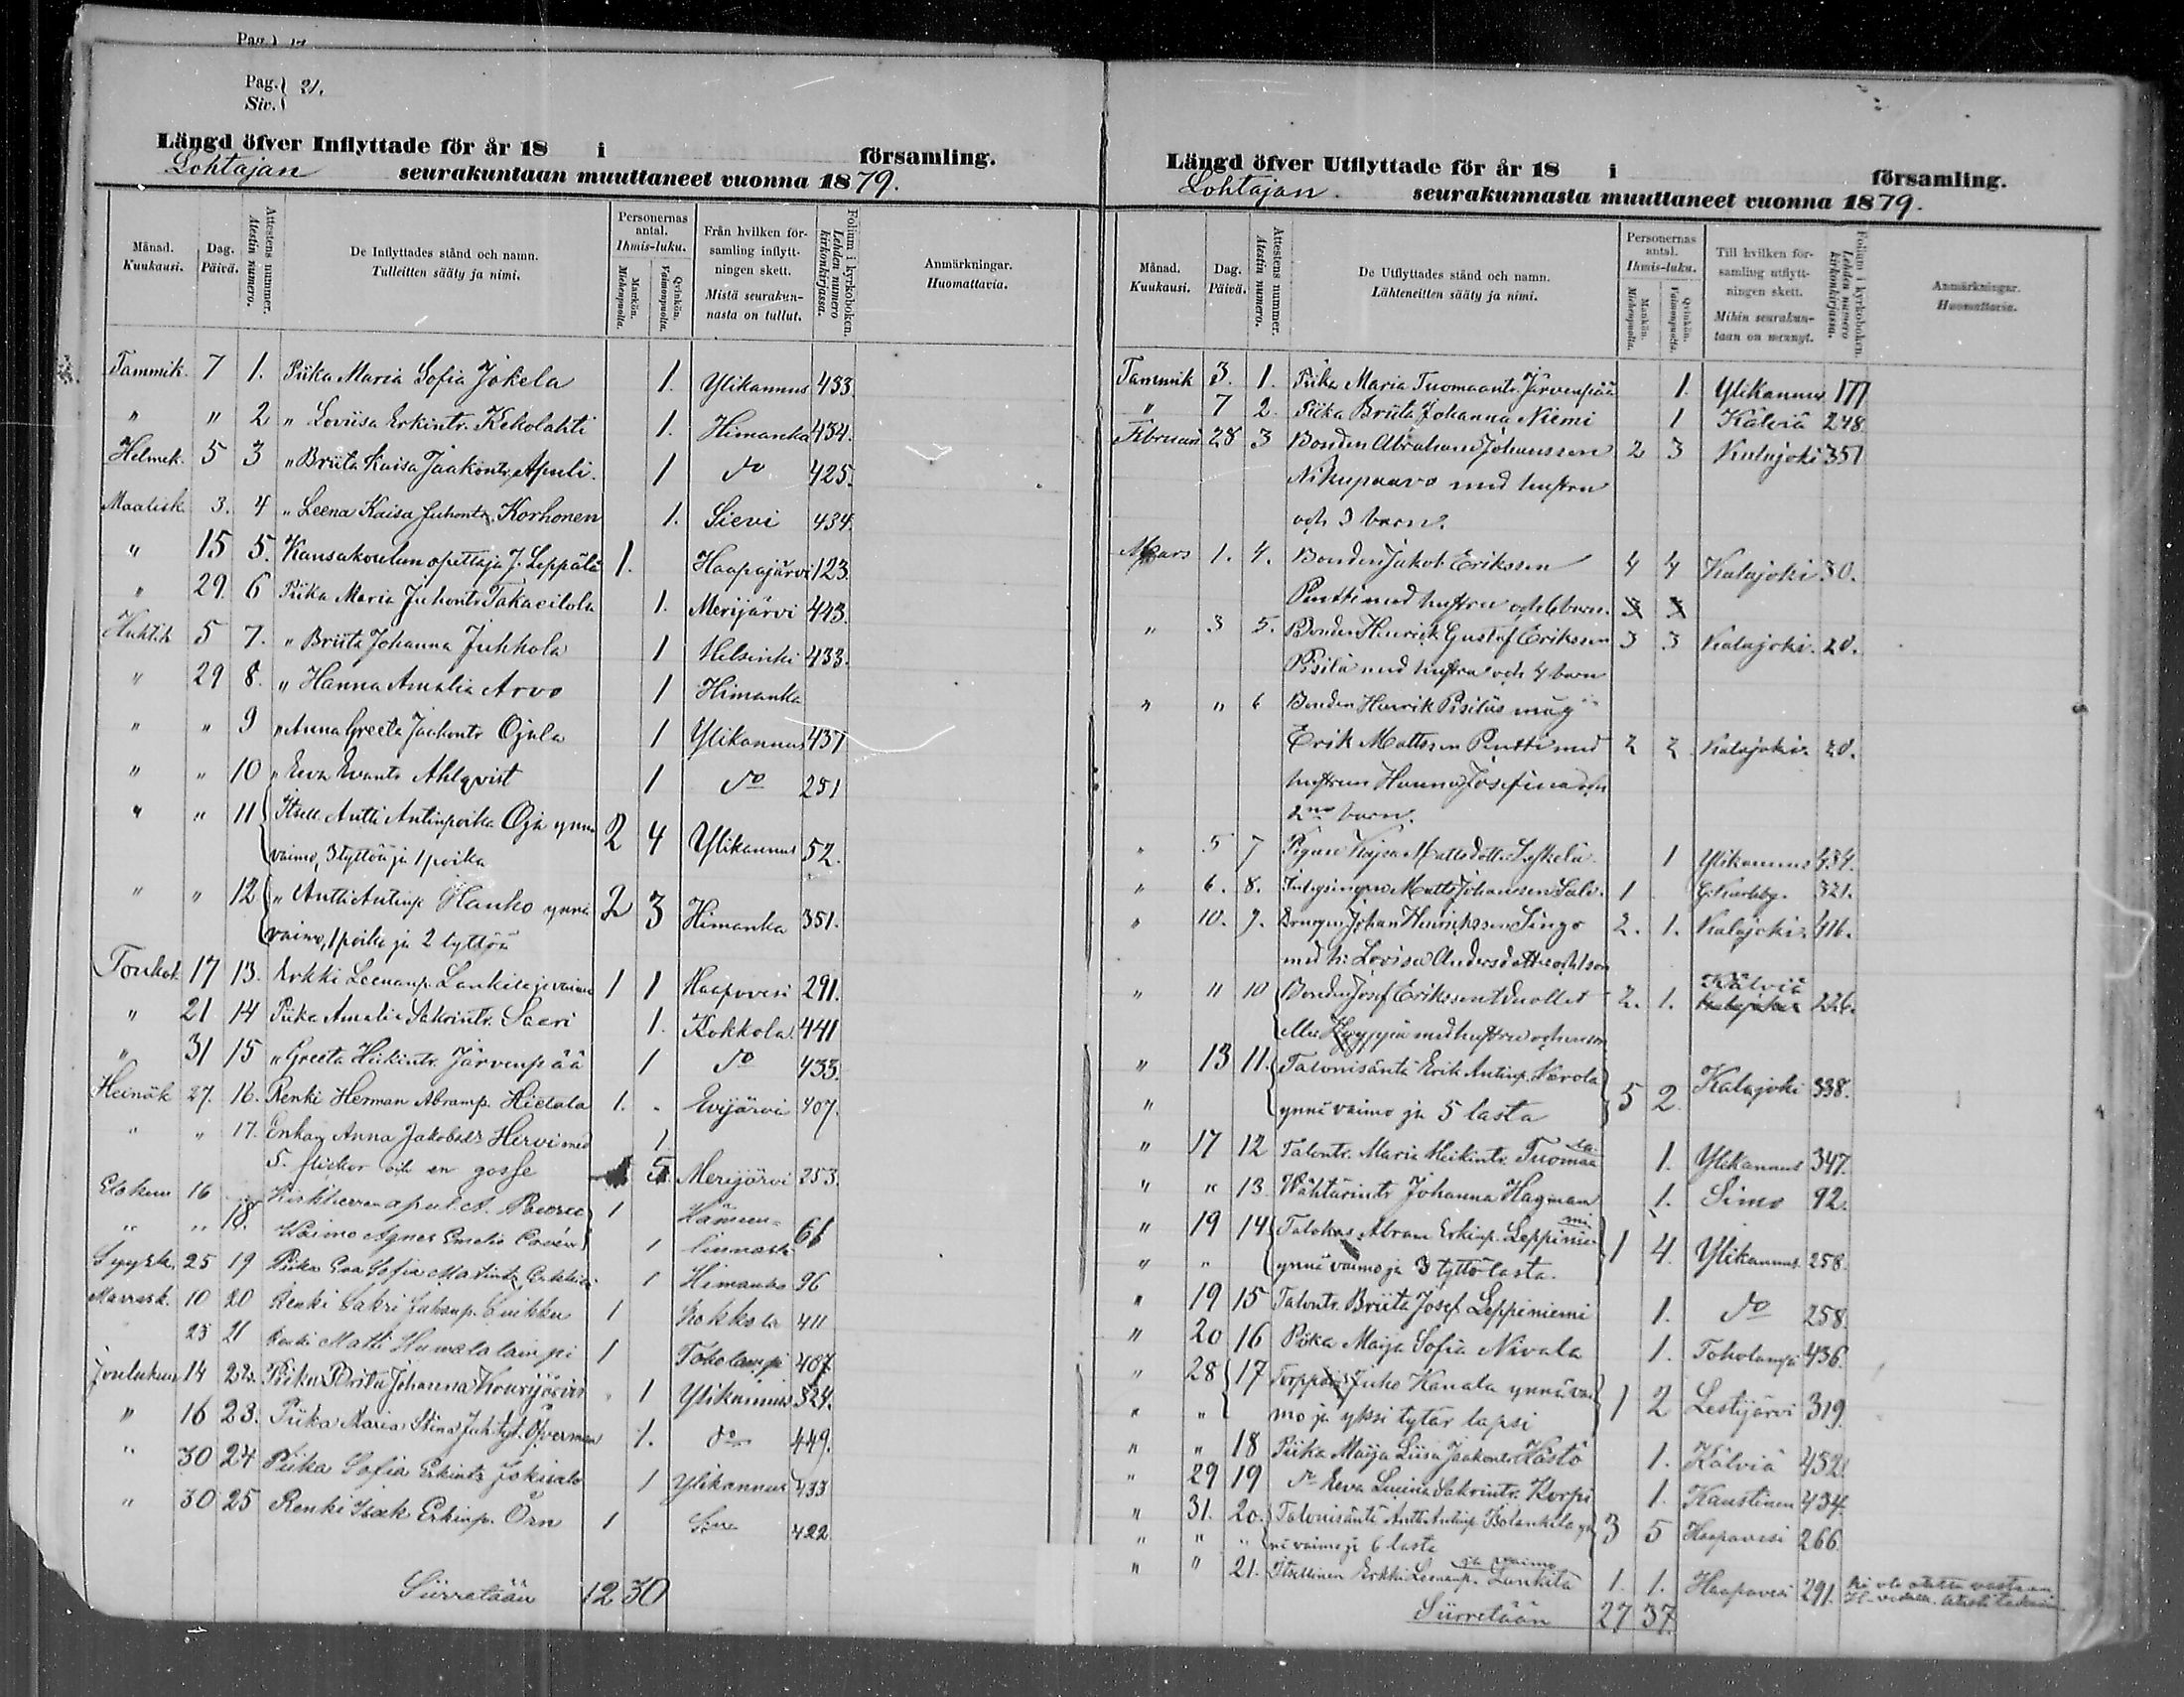 Pag.
Pag. 21.
Siv.
Längd öfver Inflyttade för år 18 i församling.
Lohtajan seurakuntaan muuttaneet vuonna 1879.
Månad. Kuukausi.
Dag. Päivä.
Attestens nummer. Atestin numero.
De Inflyttades stånd och namn.
Tulleitten sääty ja nimi.
Personernas antal. Ihmis-luku.
Mankön. Miehenpuolia.
Qvinkön. Vaimonpuolia.
Från hvilken församling inflyttningen skett.
Mistä seurakunnasta on tullut.
Folium i kyrkoboken. Lehden numero kirkonkirjassa.
Anmärkningar. Huomattavia.
Tammik. 7 1. Piika Maria Sofia Jokela 1. Ylikannus 433.
" " 2 " Loviisa Erkintr. Kekolahti 1. Himanka 434.
Helmik. 5 3 " Briita Kaisa Jaakontr. Apuli. 1 do 425.
Maalisk. 3. 4 " Leena Kaisa Juhontr. Korhonen 1. Sievi 434.
" 15 5. Kansakoulun opettaja J. Leppälä 1. Haapajärvi 123.
" 29. 6 Piika Maria Juhontr. Takaeilola 1. Merijärvi 443.
Huhtik 5 7. " Briita Johanna Juhkola 1 Helsinki 433.
" 29 8. " Hanna Amalia Arvo 1 Himanka
" " 9 " Anna Greeta Jaakontr Ojala 1 Ylikannus 437
" " 10 " Eeva Evantr Ahlqvist 1 do 251
" " 11 Itsell. Antti Antinpoika Oja ynnä 2 4 Ylikannus 52.
vaimo, 3 tyttöä ja 1 poika
" " 12 " Antti Antinp Hanko ynnä 2 3 Himanka 351.
vaimo, 1 poika ja 2 tyttöä
Toukok 17 13. Erkki Leenanp. Lankila ja vaimo 1 1 Haapavesi 291.
" 21 14 Piika Amalia Sakrintr. Saari 1. Kokkola 441
" 31 15 " Greeta Heikintr. Järvenpää 1 do 433.
Heinäk 27. 16. Renki Herman Abramp. Hietala 1. Evijärvi 407.
" " 17. Enkan Anna Jakobsdr Hervi med 1.
5. flickor och en gosse 5 Merijärvi 253.
Elokuu 16 1 61
" " 18. Waimo Agnes Emelie 1
Syysk. 25 19 Piika Eva Sofia Matintr. 1 Himanka 96
Marrask. 10 20 Renki Sakri Juhanp. 1 Kokkola 411
25 21 Renki Matti Humalalampi 1 Toholampi 407
Joulukuu 14 22. Piika Brita Johanna Kourijärvi 1 Ylikannus 324.
" 16 23. Piika Maria Stina Juh. tyt. Öfverman 1. do 449.
" 30 24 Piika Sofia Erkintr. Jokisalo 1 Ylikannus 433
" 30 25 Renki Isak Erkinp. Örn 1 422
Siirretään 12 30
Längd öfver Utflyttade för år 18 i församling.
Lohtajan. seurakunnasta muuttaneet vuonna 1879.
Månad. Kuukausi.
Dag. Päivä.
Attestens nummer. Atestin numero.
De Utflyttades stånd och namn.
Lähteneitten sääty ja nimi.
Personernas antal. Ihmis-luku.
Mankön. Miehenpuolia.
Qvinkön. Vaimonpuolia.
Till hvilken församling utflyttningen skett.
Mihin seurakuntaan on mennyt.
Folium i kyrkoboken. Lehden numero kirkonkirjassa.
Anmärkningar. Huomattavia.
Tammik 3. 1. Piika Maria Tuomaantr. Järvenpää 1. Ylikannus 177
" 7 2. Piika Briita Johanna Niemi 1 Kälviä 248
Februari 28 3 Bonden Abraham Johansson 2 3 Kalajoki 351
Nikupaavo med hustru
och 3 barn.
Mars 1. 4. Bonden Jakob Eriksson 4 4 Kalajoki 30.
Pentti med hustru och 6 barn.
" 3 5. Bonden Henrik Gustaf Eriksson 3 3 Kalajoki. 20.
Pisilä med hustru och 4 barn
" " 6 Bonden Henrik Pisiläs måg
Erik Mattsson Pentti med 2 2 Kalajoki 20.
hustrun Hanna Josefina och
2ne barn.
" 5 7 Pigan Kajsa Mattsdotter 1 Ylikannus 434.
" 6. 8. Matts Johansson Salo. 1 G: Karleby. 321.
" 10. 9. Drängen Johan Henriksson Lingo 2. 1. Kalajoki 416.
med h: Lovisa Andersdotter och 1 son
" 11 10 Bonden Josef Eriksson 2. 1. Kälviä 226.
eller Hyyppä med hustru och en son
" 13 11. Talonisäntä Erik Antinp. Narola 5 2 Kalajoki 338.
" ynnä vaimo ja 5 lasta
" 17 12 Talontr. Maria Heikintr. Tuomaala 1. Ylikannus 347.
" " 13 Wähtärintr Johanna Hagman 1. Simo 92.
" 19 14 Talokas Abram Erkinp. Leppiniemi 1 4. Ylikannus 258.
" " ynnä vaimo ja 3 tyttölasta.
" 19 15 Talontr. Briita Josef. Leppiniemi 1. do 258.
" 20 16 Piika Maija Sofia Nivala 1. Toholampi 436.
" 28 17 Torppari Juho Kanala ynnä vai 1 2 Lestijärvi 319.
" " mo ja yksi tytär lapsi
" " 18 Piika Maija Liisa Jaakontr Hästö 1. Kälviä 452.
" 29 19 do Eeva Sakrintr. Korpi 1. Kaustinen 434.
" 31. 20. Talonisäntä Antti Antinp. yn 3 5 Haapavesi 266.
" " " nä vaimo ja 6 lasta
" " 21. Itsellinen Erkki Leenanp. Lankila ja vaimo 1. 1. Haapavesi 291.
Siirretään 27 37.